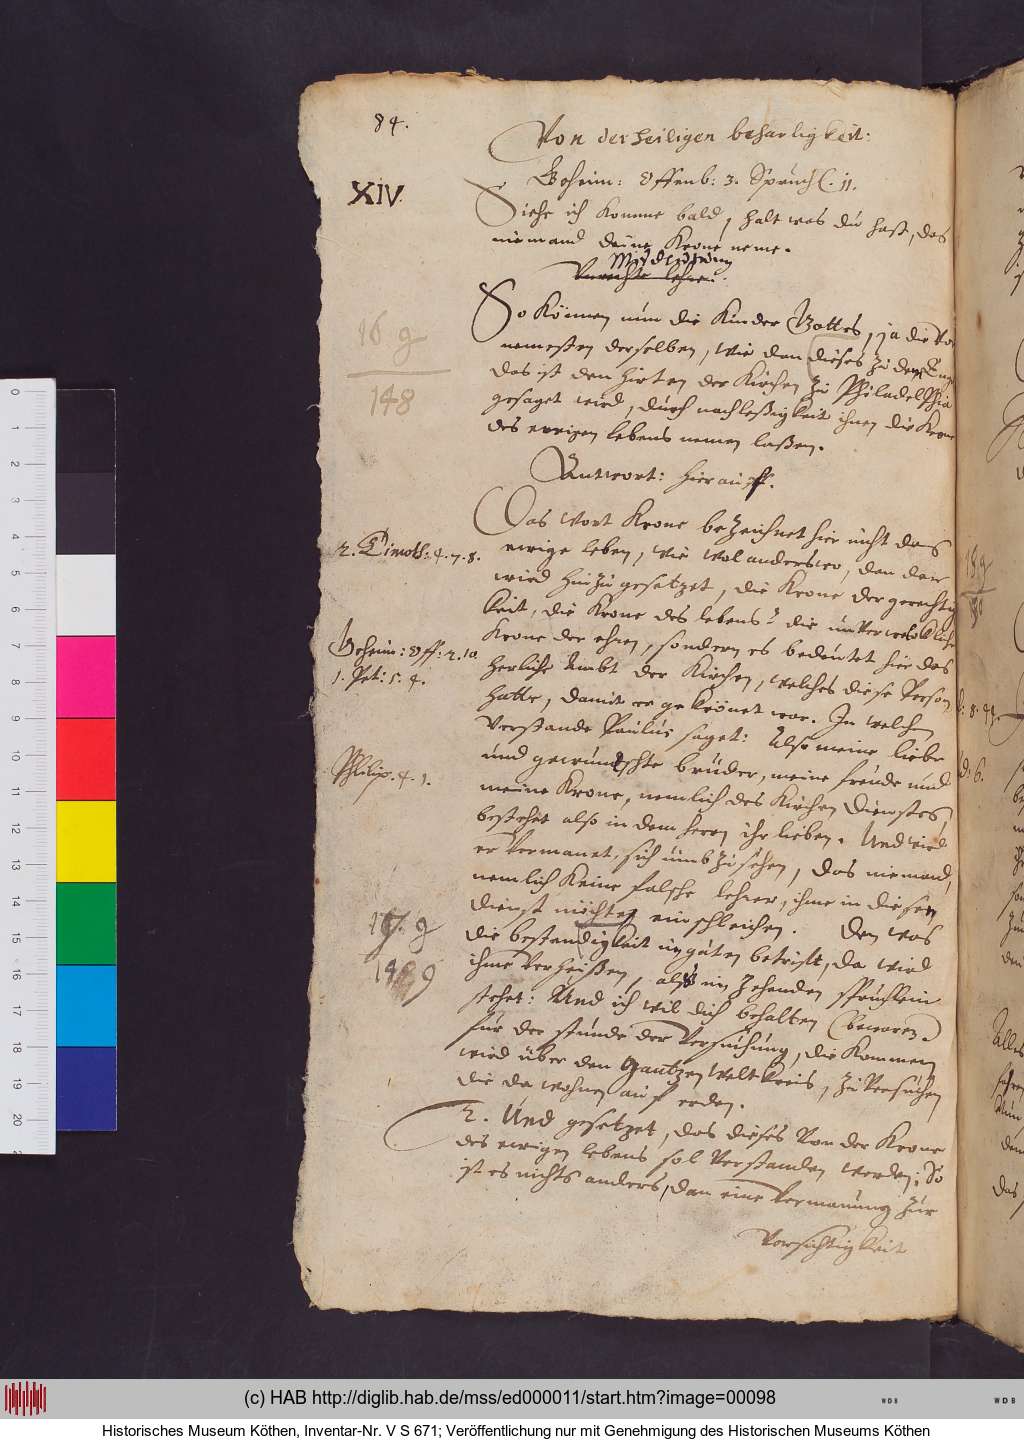 84.
Von der heiligen beharligkeit:
XIV.
Geheim: Offenb: 3. Spruch C. 11.
Siehe ich komme bald, halt was du hast, das
niemand deine Krone neme.
Unrechte lehre.
So können nun die Kinder Gottes, ja die vor
nemesten derselben, wie dan dieses zu dem Engel
das ist dem hirten der Kirchen zu Philadelphia
gesaget wird, durch nachleßigkeit ihnen die Krone
des ewigen lebens nemen laßen.
16 g
148
Antwort: hierauff.
Das wort Krone bezeichnet hier nicht das
2. Timoth: 4. 7. 8.
ewige leben, wie wol anderswo, den dar
wird hinzu gesetzet, die Krone der gerechtig
keit, die Krone des lebens: die unverwelckliche
Geheim: Off: 2. 10
1. Pet: 5. 4.
Krone der ehren, sondern es bedeutet hier das
herliche Ambt der Kirchen, welches diese Person
hatte, damit er gekrönet war. In welchem
verstande Paulus saget: Also meine liebe
Philip. 4. 1.
und gewündschte brüder, meine freude und
meine Krone, nemlich des Kirchen Dienstes
bestehet also in dem herrn ihr lieben. Und wird
er vermanet, sich umb zu sehen, das niemand,
nemlich keine falsche lehrer, ihme in diesen
dienst möchten einschleichen. Den was
die bestandigkeit im guten betrifft, da wird
17. g
149
ihme verheißen, als im zehenden sprüchlein
stehet: Und ich wil dich behalten (bewaren)
für der stunde der versuchung, die kommen
wird über den gantzen weltkreis, zu versuchen
die da wohnen auf erden.
2. Und gesetzet, das dieses von der Krone
des ewigen lebens sol verstanden werden; So
ist es nichts anders, dan eine vermanung zur
vorsichtigkeit
(c) HAB http://diglib.hab.de/mss/ed000011/start.htm?image=00098
Historisches Museum Köthen, Inventar-Nr. V S 671; Veröffentlichung nur mit Genehmigung des Historischen Museums Köthen